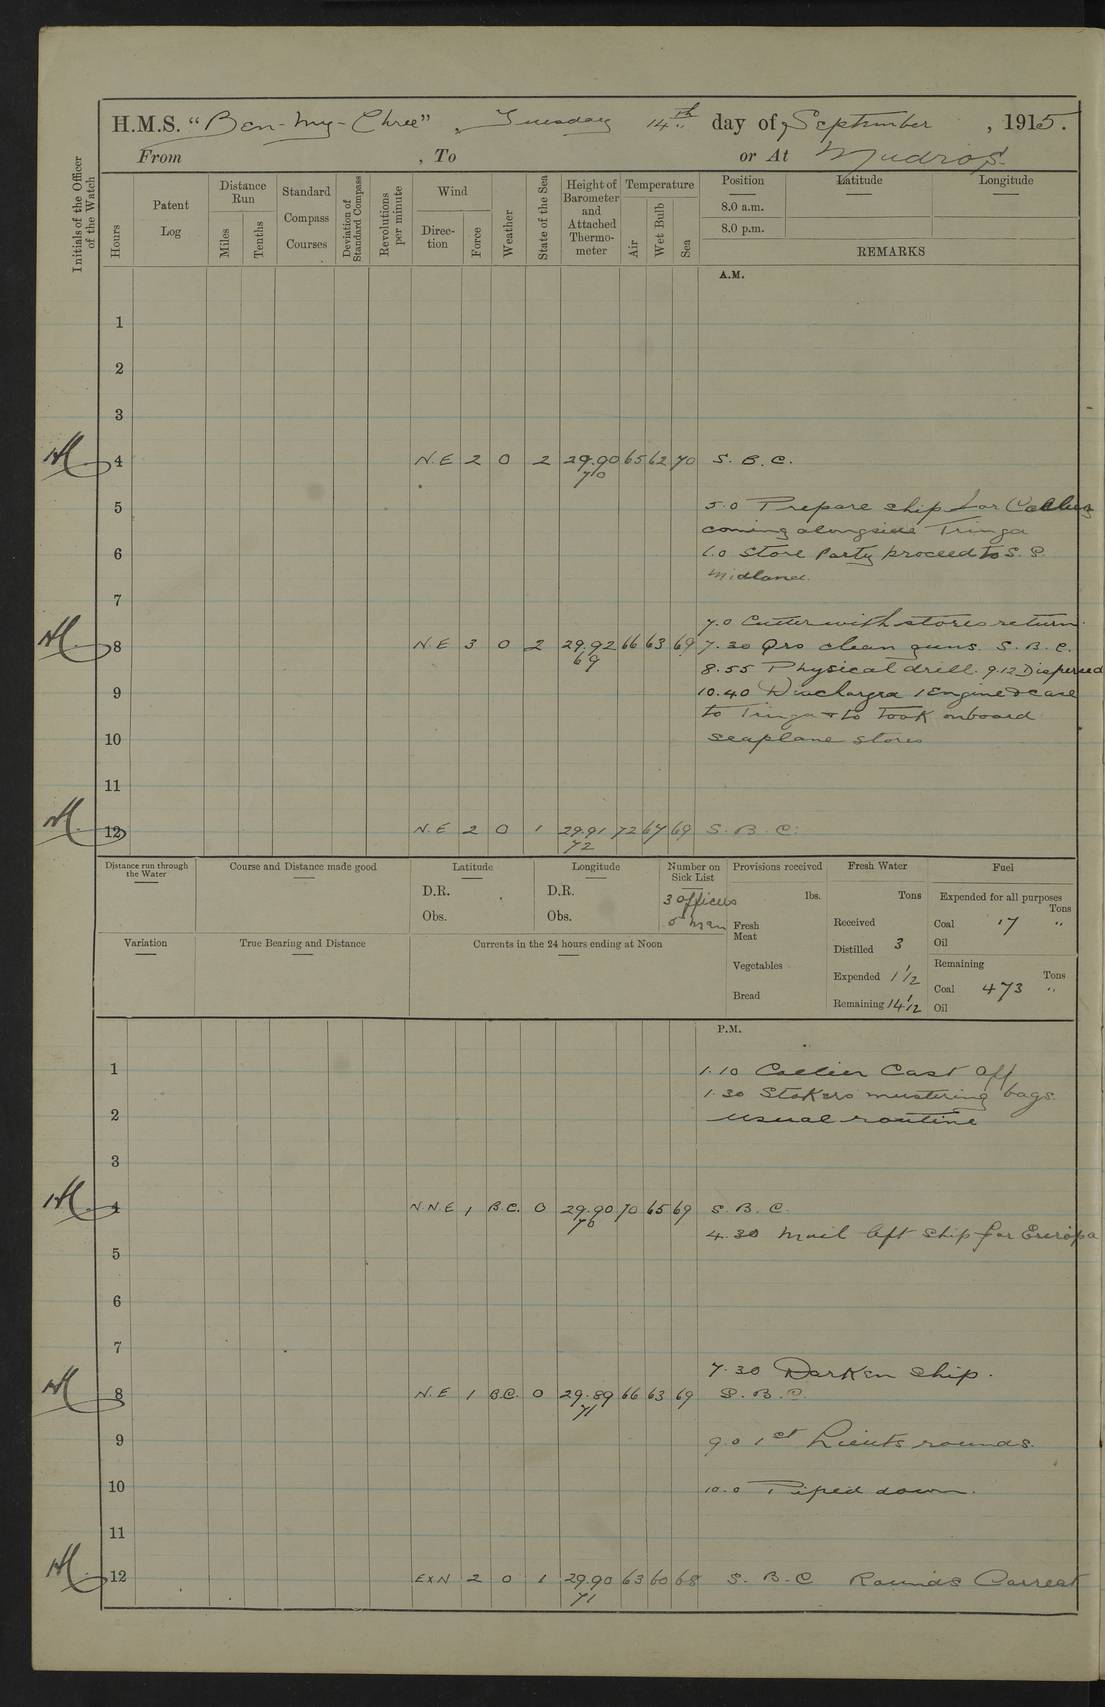 H.M.S. "Ben-my-Chree", Tuesday 14th day of September, 1915.
From , To or At Mudros.
Initials of the Officer of the Watch
Hours
Patent Log
Distance Run
Miles
Tenths
Standard Compass Courses
Deviation of Standard Compass
Revolutions per minute
Wind
Direction
Force
Weather
State of the Sea
Height of Barometer and Attached Thermometer
Temperature
Air
Wet Bulb
Sea
Position Latitude Longitude
8.0 a.m.
8.0 p.m.
REMARKS
A.M.
1
2
3
4 N.E 2 0 2 29.90 70 65 62 70 S. B. C.
5 5.0 Prepare ship for
coming alongside Tringa
6 6.0 Store Party proceed to S. S.
Midland.
7
7.0 Cutter with stores return.
8 N.E 3 0 2 29.92 69 66 63 69 7.30 Qrs clean guns. S. B. C.
8.55 Physical drill. 9.12 Dispersed
9 10.40 1 Engine & case
to Tringa & to Took onboard
10 seaplane stores
11
12 N.E 2 0 1 29.91 72 72 67 69 S. B. C.
Distance run through the Water
Course and Distance made good
Latitude
D.R.
Obs.
Longitude
D.R.
Obs.
Number on Sick List
3 officers
0 man
Provisions received
lbs.
Fresh Meat
Vegetables
Bread
Fresh Water
Tons
Received
Distilled 3
Expended 1 1/2
Remaining 14 1/2
Fuel
Expended for all purposes
Tons
Coal 17 "
Oil
Remaining
Tons
Coal 473 "
Oil
Variation
True Bearing and Distance
Currents in the 24 hours ending at Noon
P.M.
1 1.10 Collier Cast off
1.30 Stokers mustering bags.
2 usual routine
3
4 N.N.E 1 B.C. 0 29.90 70 70 65 69 S. B. C.
4.30 Mail left ship for Europa
5
6
7
7.30 Darken ship.
8 N.E 1 B.C. 0 29.89 71 66 63 69 S. B. C.
9 9.0 1st Lieuts rounds.
10 10.0 Piped down.
11
12 ExN 2 0 1 29.90 71 63 60 68 S. B. C Rounds Correct